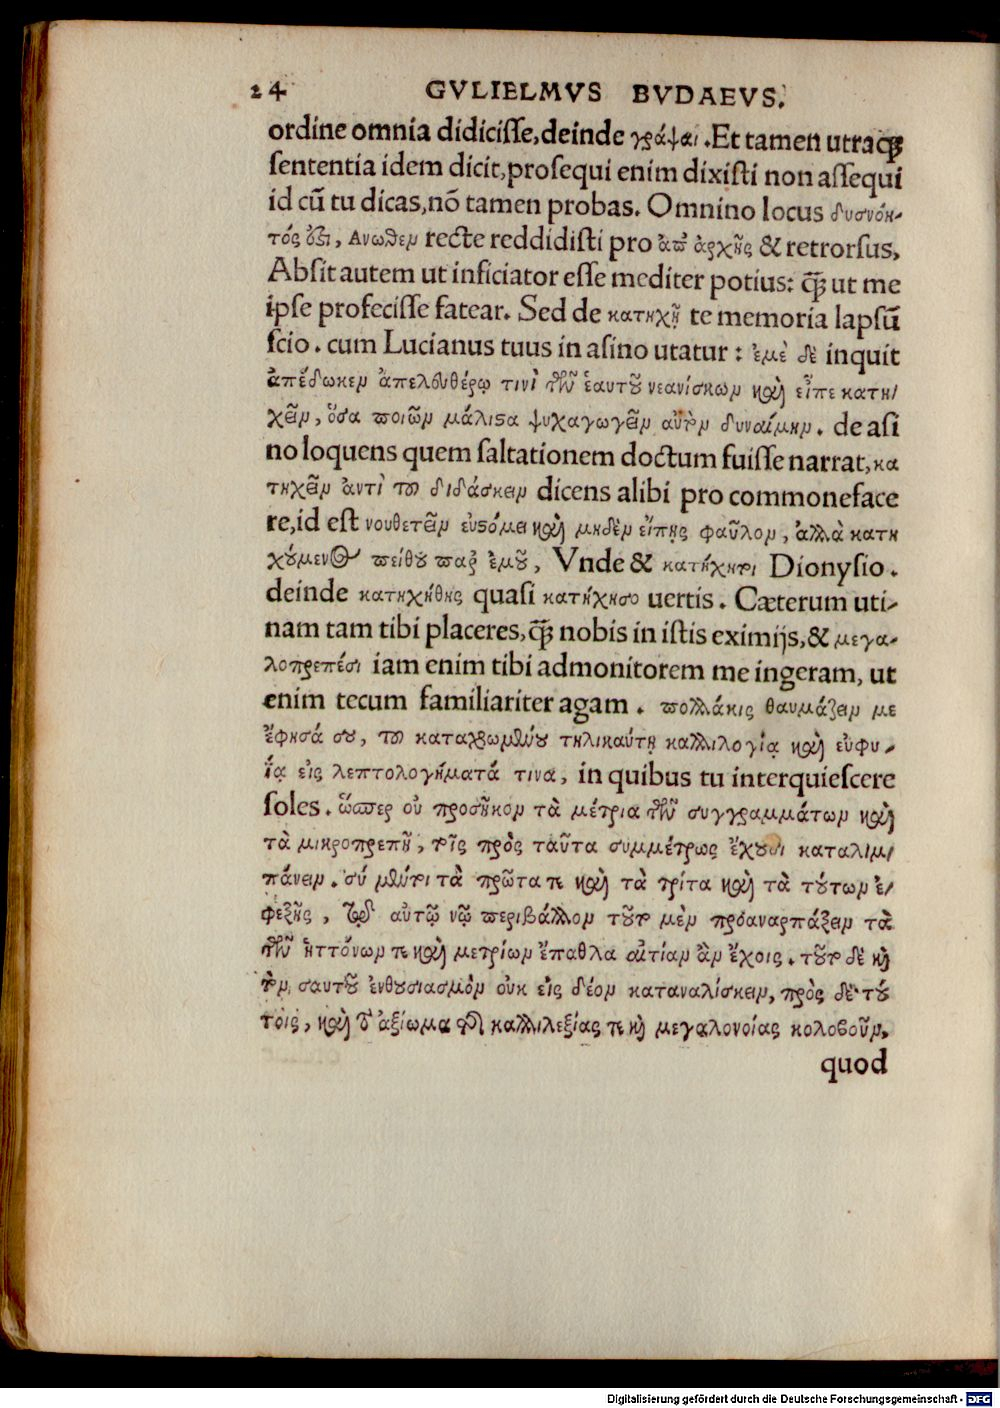 24 GVLIELMVS BVDAEVS.
ordine omnia didicisse, deinde γράψαι. Et tamen utraq̃
sententia idem dicit, prosequi enim dixisti non assequi
id cũ tu dicas, nõ tamen probas. Omnino locus δυσνόη-
τός ὅξι, Ανωθεν recte reddidisti pro ἀπ’ ἀρχῆς & retrorsus,
Absit autem ut inficiator esse mediter potius: q̃ ut me
ipse profecisse fatear. Sed de κατηχῇ te memoria lapsũ
scio. cum Lucianus tuus in asino utatur: ἐμὲ δὲ inquit
ἀπέδωκεν ἀπελευθέρῳ τινὶ τῶν ἑαυτοῦ νεανίσκων καὶ εἶπε κατη/
χεῖν, ὅσα ποιῶν μάλιστα ψυχαγωγεῖν αὐτὸν δυναίμην. de asi
no loquens quem saltationem doctum fuisse narrat, κα
τηχεῖν ἀντὶ τοῦ διδάσκειν dicens alibi pro commoneface
re, id est νουθετεῖν εὐστόμει καὶ μηδὲν εἴπῃς φαῦλον, ἀλλὰ κατη
χούμενος πείθου παρ’ ἐμοῦ, Vnde & κατήχηται Dionysio.
deinde κατηχήθης quasi κατήχησο uertis. Cæterum uti-
nam tam tibi placeres, q̃ nobis in istis eximijs, & μεγα-
λοπρεπέσι iam enim tibi admonitorem me ingeram, ut
enim tecum familiariter agam. πολλάκις θαυμάζειν με
ἔφησά σου, τοῦ καταχρωμένου τηλικαύτῃ καλλιλογίᾳ καὶ εὐφυ-
ΐᾳ εἰς λεπτολογήματά τινα, in quibus tu interquiescere
soles. ὥσπερ οὐ προσῆκον τὰ μέτρια τῶν συγγραμμάτων καὶ
τὰ μικροπρεπῆ, τοῖς πρὸς ταῦτα συμμέτρως ἔχουσι καταλιμ/
πάνειν. σύ μέντοι τὰ πρῶτα τε καὶ τὰ τρίτα καὶ τὰ τούτων ἐ/
φεξῆς, αὐτῷ νῷ περιβάλλον τοῦτο μὲν προαναρπάξειν τὰ
τῶν ἡττόνων τε καὶ μετρίων ἔπαθλα αἰτίαν ἂν ἔχοις. τοῦτο δὲ καὶ
τὸν σαυτοῦ ἐνθουσιασμὸν οὐκ εἰς δέον καταναλίσκειν, πρὸς δὲ τού
τοις, καὶ τὸ ἀξίωμα τῆς καλλιλεξίας τε καὶ μεγαλονοίας κολοβοῦν.
quod
Digitalisierung gefördert durch die Deutsche Forschungsgemeinschaft - DFG